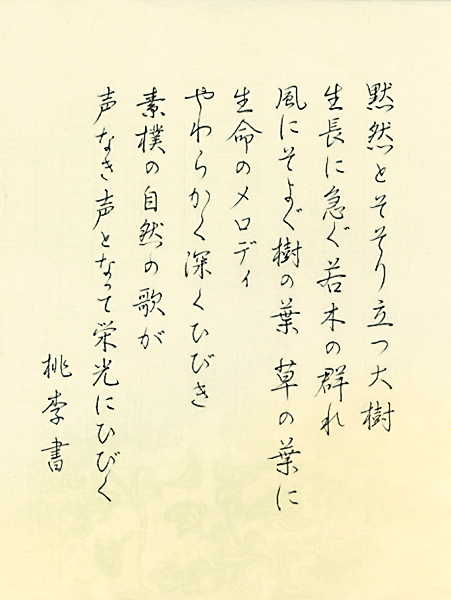 黙然とそそり立つ大樹
生長に急ぐ若木の群れ
風にそよぐ樹の葉 草の葉に
生命のメロディ
やわらかく深くひびき
素樸の自然の歌が
声なき声となって栄光にひびく
桃李書